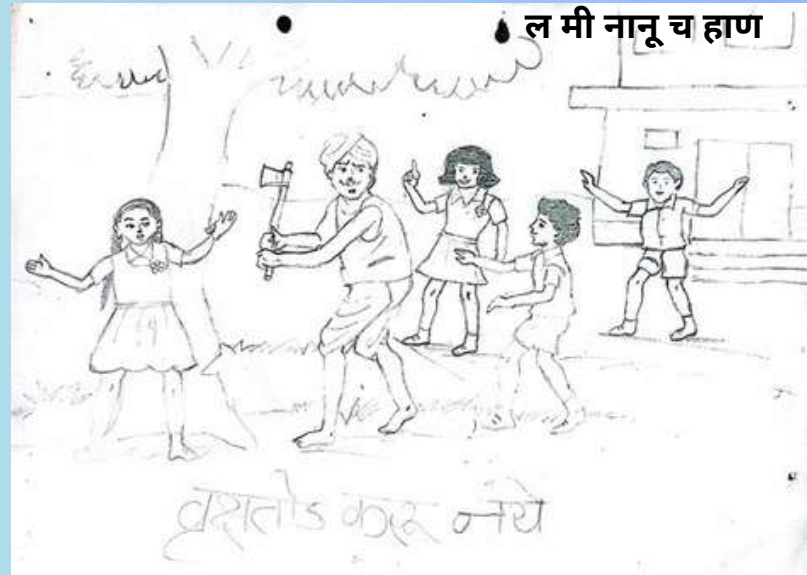 ल मी नानू च हाण
वृक्षतोड करू नये